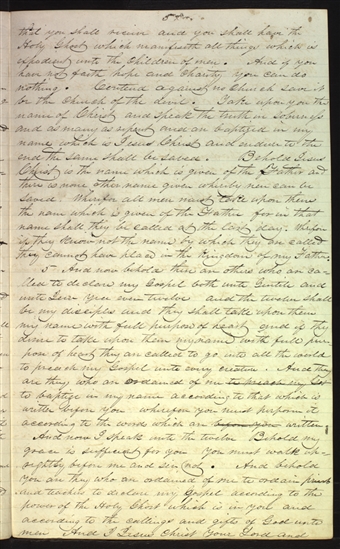 that you shall receive and you shall have the
Holy Ghost which manifesteth all things which is
expedient unto the Children of men. And if you
have not faith hope and Charity you can do
nothing. Contend against no Church save it
be the Church of the devil. Take upon you the
name of Christ and speak the truth in soberness
and as many as repent and are baptized in my
name which is Jesus Christ and endure to the
end the Same shall be Saved. Behold Jesus
Christ is the name which is given of the Father and
there is none other name given whereby men can be
Saved Wherefore all men must take upon them
the name which is given of the Father for in that
name shall they be called at the last day. Wherefore
if they Know not the name by which they are called
they cannot have place in the Kingdom of my Father.
5. And now behold there are others who are cal
led to declare my Gospel both unto Gentile and
unto Jew Yea even twelve and the twelve shall
be my disciples and they shall take upon them
my name with full purpose of heart and if they
desire to take upon them my name with full pur
pose of heart they are called to go into all the world
to preach my Gospel unto every creature. And they
are they who are ordained of me to
to baptize in my name according to that which is
written before you wherefore you must perform it
according to the words which are before you written
And now I speak unto the twelve Behold my
grace is sufficient for you You must walk up
rightly before me and sin not. And behold
you are they who are ordained of me to ordain priests
and teachers to declare my gospel according to the
power of the Holy Ghost which is in you and
according to the callings and gifts of God unto
men And I Jesus Christ Your Lord and